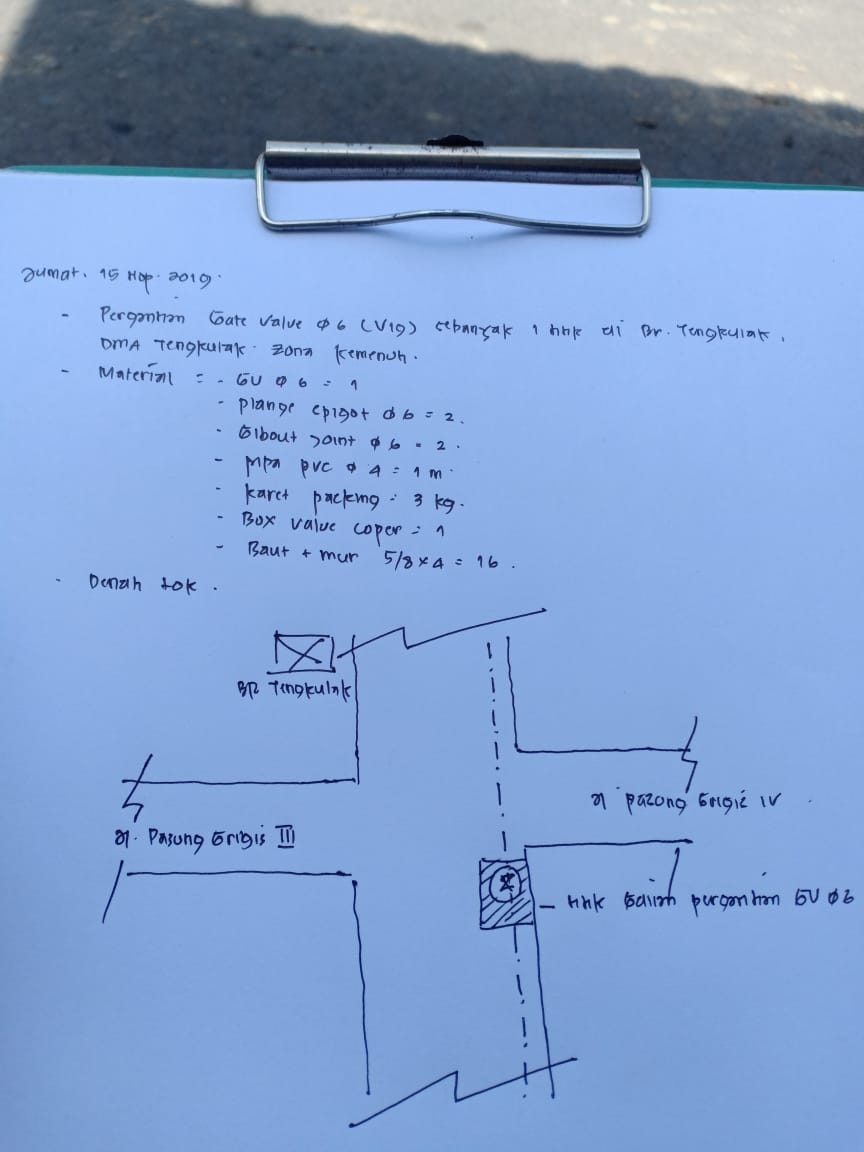 Jumat, 15 Nop. 2019.
- Pergantian Gate Valve Ø 6 (V19) sebanyak 1 ttk di Br. Tengkulak,
DMA Tengkulak. Zona Kemenuh.
- Material = - GV Ø 6 = 1
- plange spigot Ø 6 = 2.
- Gibout Joint Ø 6 = 2.
- pipa pvc Ø 4 = 1 m.
- karet packing = 3 kg.
- Box valve coper = 1
- Baut + mur 5/8 x 4 = 16.
- Denah lok.
BR Tengkulak
Jl pazong Grigis IV
Jl. Pasung Grigis III
- ttk Galian pergantian GV Ø 6